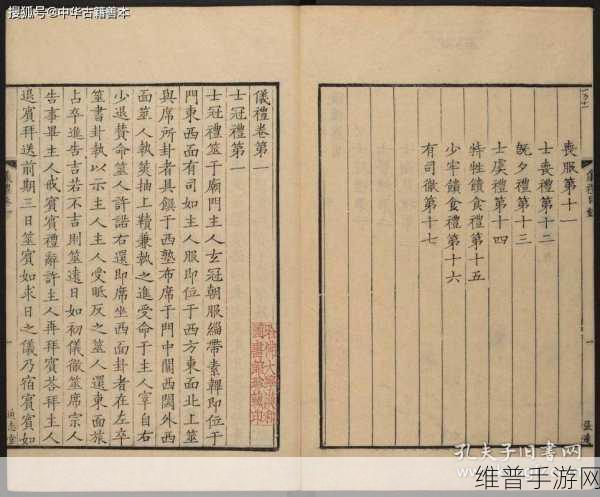 搜狐号@中华古籍善本
喪服第十一
士喪禮第十二
旣夕禮第十三
士虞禮第十四
特牲饋食禮第十五
少牢饋食禮第十六
有司徹第十七
儀禮卷第一
士冠禮第一
士冠禮筮于廟門主人玄冠朝服緇帶素韠即位于
門東西面有司如主人服即位于西方東面北上筮
與席所卦者具饌于西塾布席于門中闑西閾外西
面筮人執筴抽上韇兼執之進受命于主人宰自右
少退贊命筮人許諾右還即席坐西面卦者在左卒
筮書卦執以示主人主人受眡反之筮人還東面旅
占卒進告吉若不吉則筮遠日如初儀徹筮席宗人
告事畢主人戒賓賓禮辭許主人再拜賓荅拜主人
退賓拜送前期三日筮賓如求日之儀乃宿賓賓如
哈佛大學漢和
圖書館珍藏印
孔夫子旧书网
维普手游网